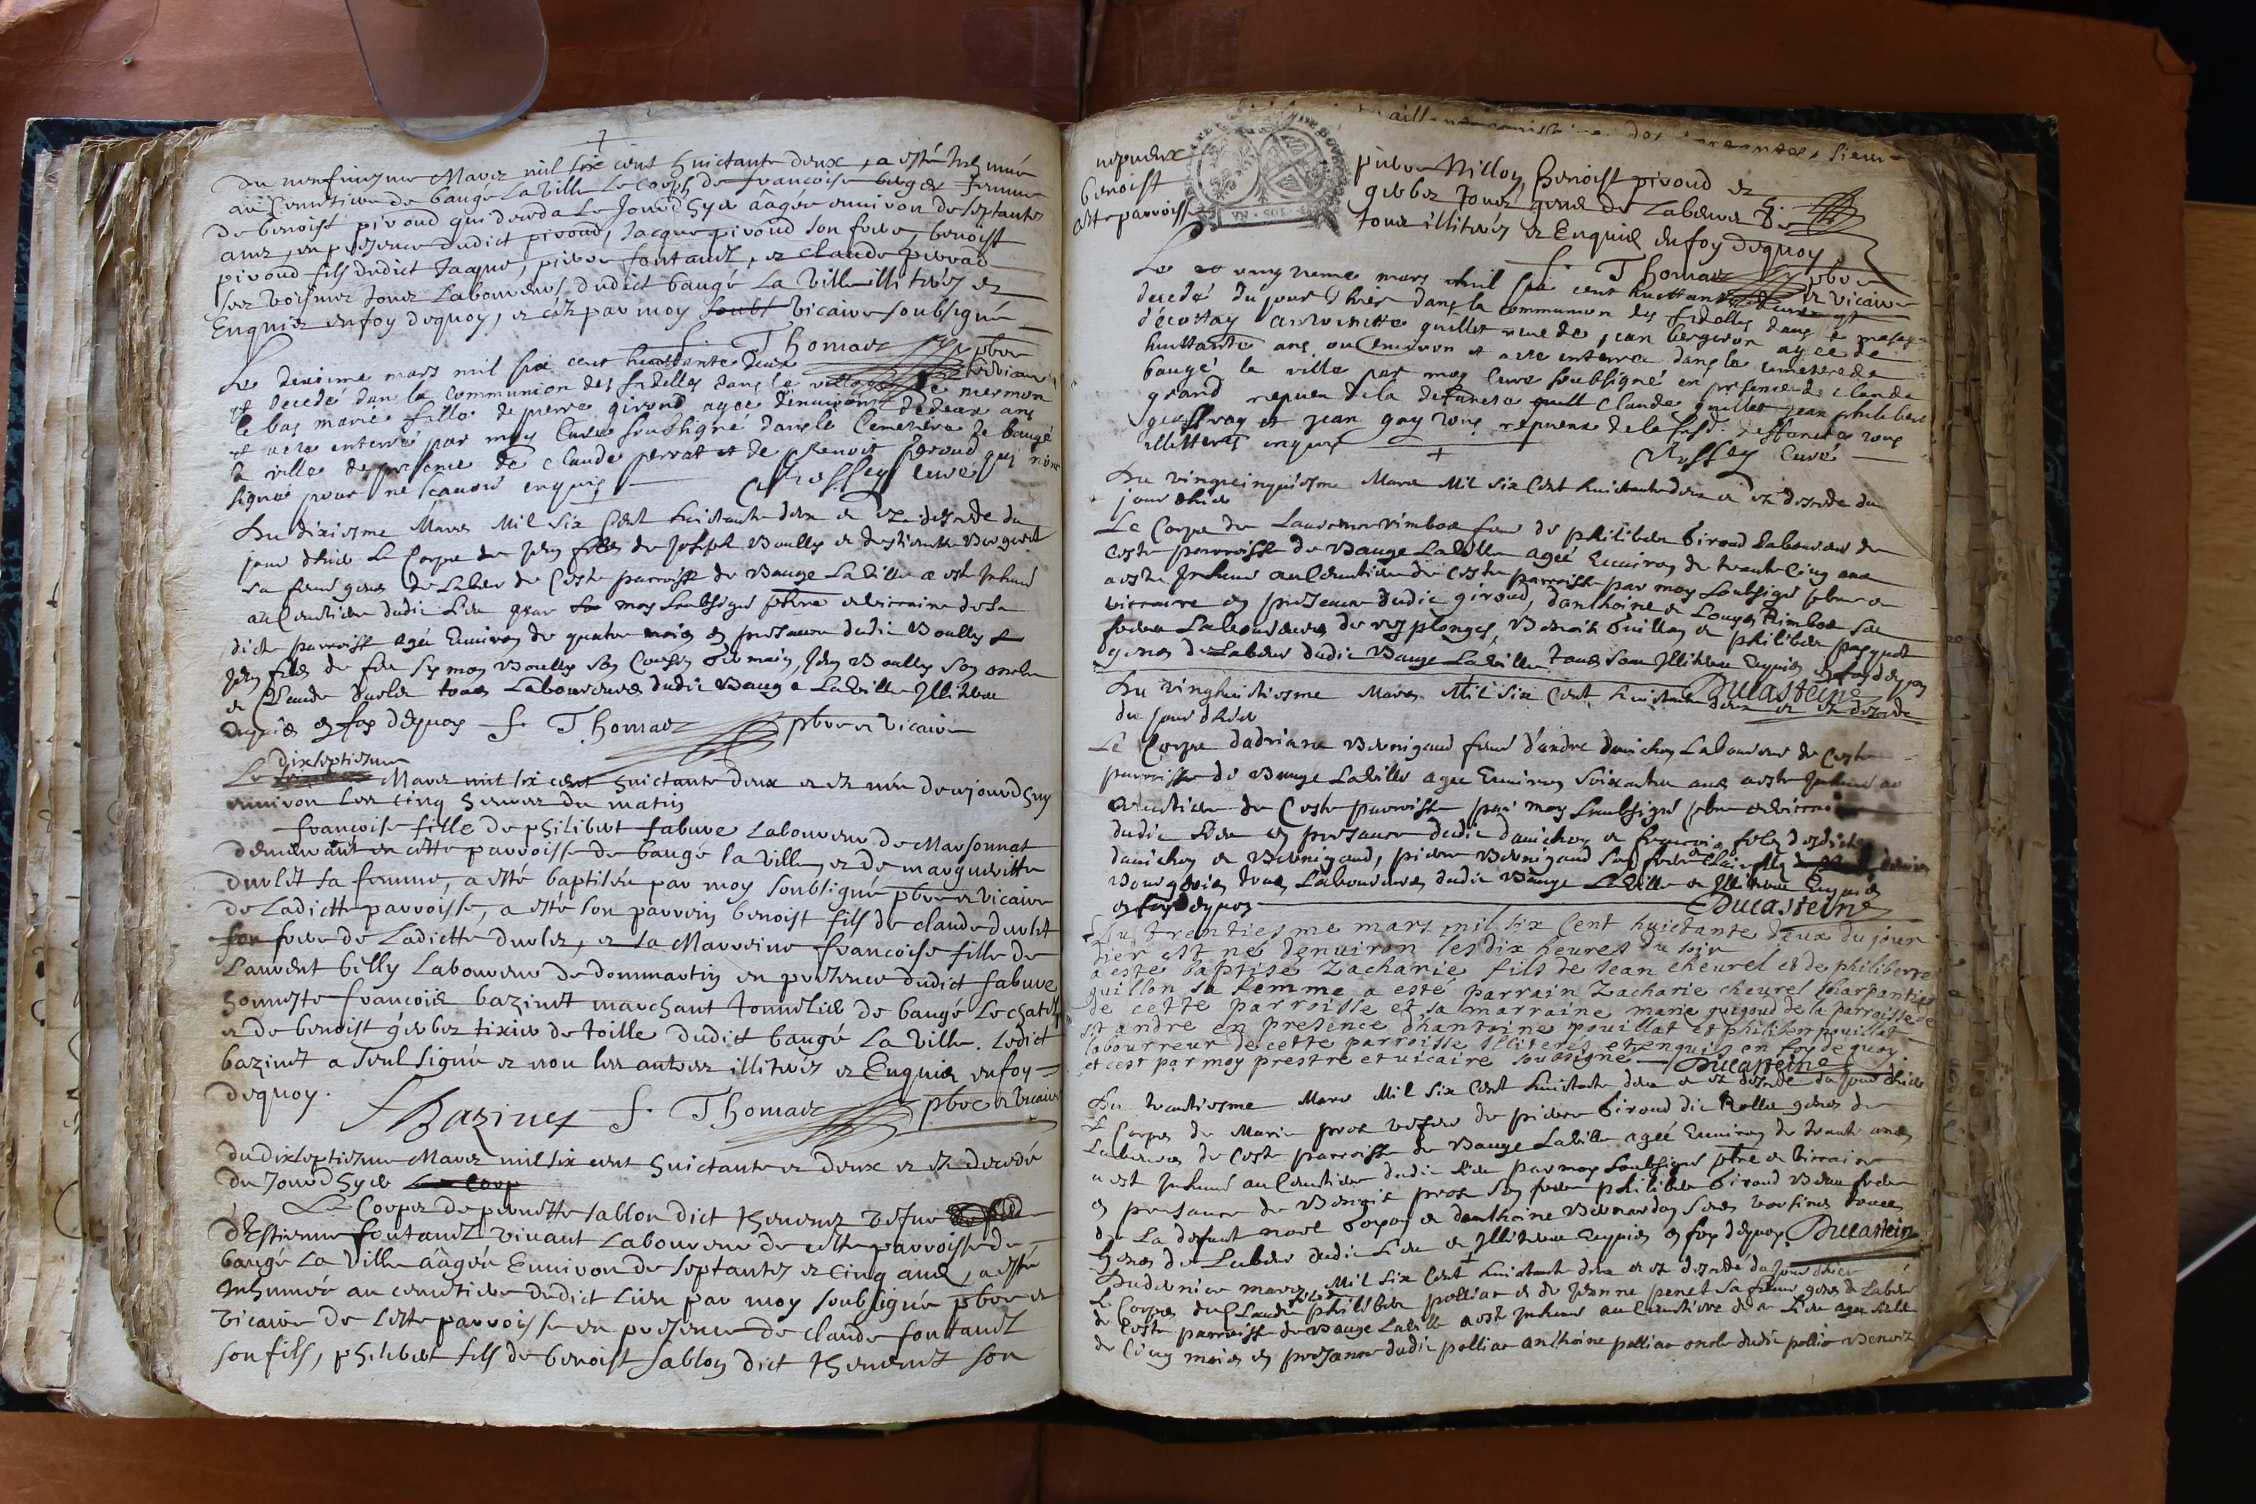 Du neufuiesme Mars mil six cent huictante deux, a esté Inhumé
au Cemetiere de baugé La Ville Le corps de francoise berger femme
de benoist pivoud qui deceda Le Jourd'hyer aagée enuiron de septante
ans, en presence dudict pivoud, Jacque pivoud son frere, benoist
pivoud fils dudict Jacque, pierre fontanel, et Claude perrad
ses voisins tous Laboureurs dudict baugé La Ville illiterés et
Enquis enfoy dequoy, et c'est par moy vicaire soubsigné
f. Thomas pbre et vicaire
Le dixieme mars mil six cent huittante deux
est decedé dans la communion des fidelles dans le village de mermon
le bas marie fille de pierre giroud agee d'enuiron de deux ans
et a ete enterré par moy Curé soubsigné dans le Cemetiere de baugé
la ville en presence de Claude perrat et de Benoit giroud qui n'ont
signé pour ne scauoir enquis curé
Du dixiesme Mars Mil six Cent huictante deux et est decede du
jour d'hier Le Corps de Jean fils de Joseph Boully et destiennette Bergeret
sa feme gens de Labeur de Ceste parroisse de Bauge La Ville a este Inhumé
au Cemetiere dudit Lieu par moy soubsigné pbre et vicaire de la
dicte parroisse agé Enuiron de quatre mois en presence dudit Boully et
Jean fils de feu Symon Boully son Cousin Germain, Jean Boully son oncle
et Claude Durlet tous Laboureurs dudit Bauge La Ville Illiterés
enquis en foy dequoy f. Thomas pbre et vicaire
dixseptiesme
Le Mars mil six cent huictante deux et est née De cejourd'huy
enuiron les cinq heures du matin
francoise fille de philibert fabure Laboureur de Marsonnat
demeurant en cette parroisse de baugé la Ville, et de marguerite
durlet sa femme, a esté baptisée par moy soubsigné pbre et vicaire
de Ladicte parroisse, a esté son parrein benoist fils de claude durlet
frere de Ladicte durlet, et sa Marreine francoise fille de
Laurent billy Laboureur de dommartin en presence dudict fabure
honneste francois bazinet marchant tonnelier de baugé Le chatel
et de benoist gerbez tixier de toille dudict baugé La Ville. Ledict
bazinet a seul signé et non les autres illiterés et Enquis enfoy
dequoy.
Bazinet f. Thomas pbre et vicaire
du dixseptiesme Mars mil six cent huictante et deux et est decedé
du Jourd'hyer
Le Corps de pernette sablon dict thevenet vefue
d'Estienne fontanel viuant Laboureur de cette parroisse de
baugé La Ville aagée Enuiron de septantes et cinq ans, a esté
Inhumée au cemetiere dudict Lieu par moy soubsigné pbre et
vicaire de Cette parroisse en presence de claude fontanel
son fils, philibert fils de benoist sablon dict thevenet son
nepueux
benoist
cette parroisse
pierre Nillon, benoist pivoud et
gerbez tous gens de Labeur de
tous illiterés et Enquis enfoy dequoy
f. Thomas pbre
et vicaire
Le vingtieme mars mil six cent huittante deux est
decedé du jour d'hier dans la communion des fidelles dans le masage
d'ecottay anthoinette guillet veuve de jean bergeron agee de
huittante ans ou Enuiron et a ete enterree dans le cemetiere de
baugé la ville par moy Curé soubsigné en presence de claude
grand nepueu de la defuncte Claude guillet jean philibert
geoffray et jean gay tous nepueux de la susd. deffuncte tous
illetterés enquis Curé
Du vingtcinquiesme Mars Mil Six Cent huictante deux et est decede du
jour d'hier
Le Corps de Laurence rimbos feme de philibert Giroud Laboureur de
Ceste parroisse de Bauge La Ville agee Enuiron de trante Cinq ans
a este Inhume au Cemetiere de ceste parroisse par moy soubsigne pbre et
viccaire en presence dudit giroud, danthoine et Louys Rimbos ses
freres Laboureurs de replonges, Benoit Guillon et philibert pasquot
gens de Labeur dudit Bauge La Ville tous sont Illiterés Enquis en foy dequoy
Ducasteing
Du vinghuictiesme Mars Mil Six Cent huictante deux et est decede
du jour d'hier
Le Corps dadriane Bernigaud feme d'andre danichon Laboureur de Ceste
parroisse de Bauge La Ville agee Enuiron soixante ans a este Inhume au
Cemetiere de Ceste parroisse par moy soubsigne pbre et viccaire
dudit Lieu en presence dudit danichon et francois fils desdicts
danichon et Bernigaud, pierre Bernigaud son frere et
Bourgeois tous Laboureurs dudit Bauge La Ville et Illiterés Enquis
en foy dequoy Ducasteing
Du trentiesme mars mil six Cent huictante deux du jour
hier est né denuiron les dix heures du soir
a este baptise Zacharie fils de Jean cheurel et de philiberte
guillon sa femme a esté parrain Zacharie cheurel charpantier
de cette parroisse et sa marraine marie guigoud de la parroisse de
st andre en presence dhantoine pouillat et philibert pouillat
labourreur de cette parroisse Illiteres et enquis en foy de quoy
et cest par moy prestre et uicaire soubsigné Ducasteing
Du trantiesme Mars Mil six Cent huictante deux et est decede du jour d'hier
Le Corps de Marie pros vefve de pierre Giroud dit Rollet gens de
Labeur de Ceste parroisse de Bauge La Ville agee Enuiron de trante ans
a este Inhume au Cemetiere dudit Lieu par moy soubsigne pbre et viccaire
en presance de Benoit pros son frere philibert Giroud Beau frere
de La defunt noel Gorgon et danthoine Bernardon ses voisins tous
gens de Labeur dudit Lieu et Illiterés Enquis en foy dequoy Ducasteing
Du dernier mars Mil Six Cent huictante deux et est decede du jour d'hier
Le Corps de Claude fils de philibert polliat et de Jeanne penet sa feme gens de Labeur
de Ceste parroisse de Bauge La Ville a este Inhume au Cemetiere dudit Lieu
de Cinq mois en presance dudit polliat anthoine polliat oncle dudit polliat Benoit